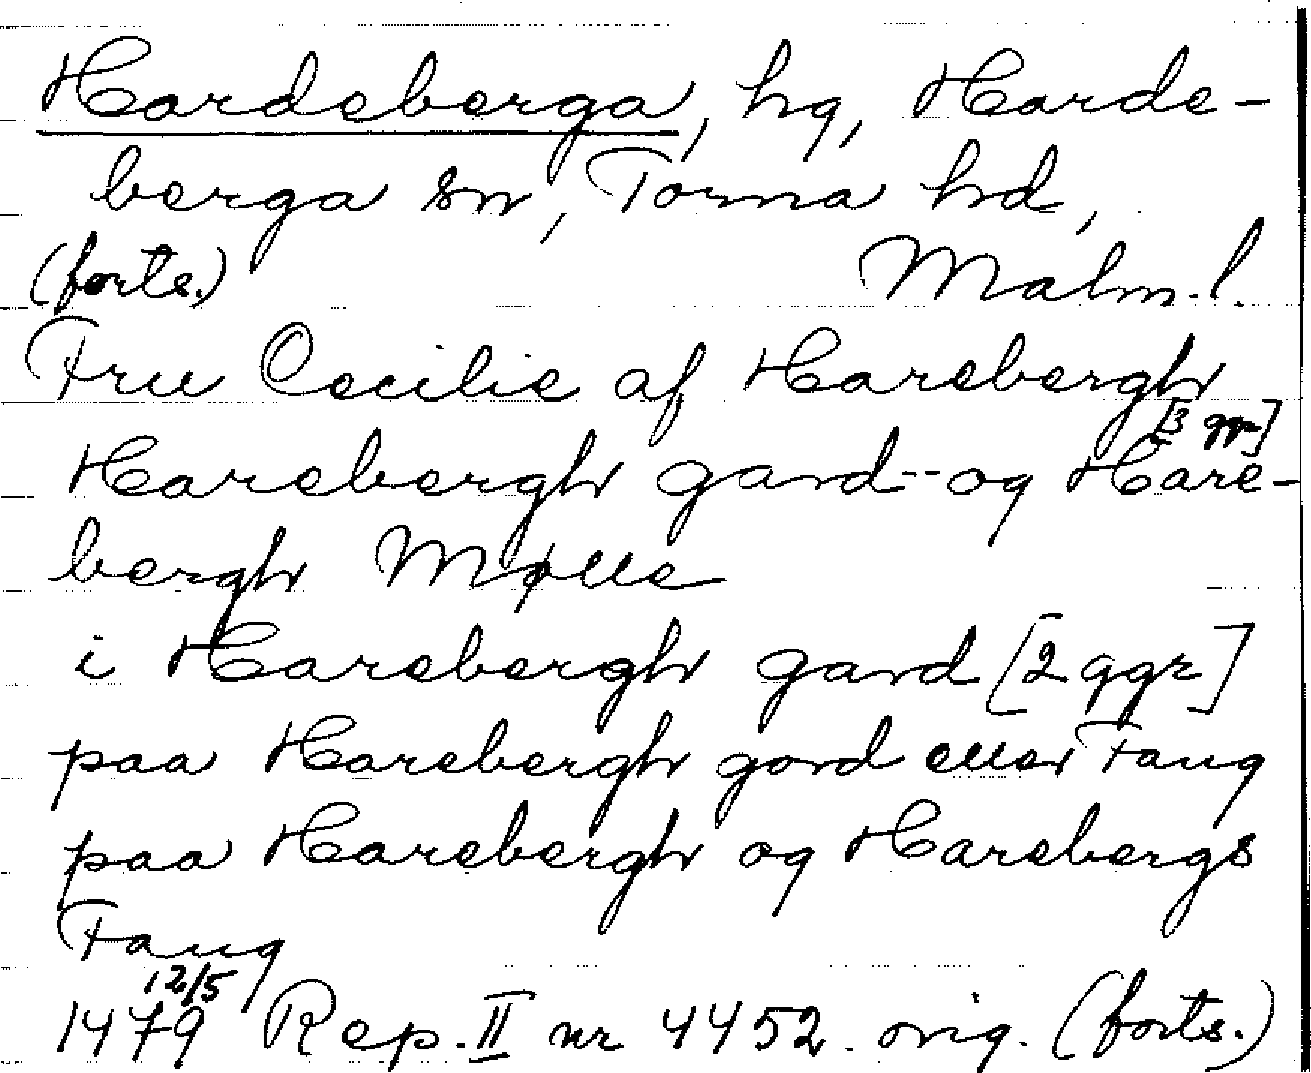 Hardeberga, hg, Harde-
berga sn, Torna hd,
(forts.) Malm.l.
Fru Cecilie af Harebergh
[3 ggr]
Harebergh gard -- og Hare-
bergh Mølle
i Harebergh gard [2 ggr]
paa Harebergh gord eller Fang
paa Harebergh og Harebergs
Fang
12/5
1479 Rep. II nr 4452. orig. (forts.)